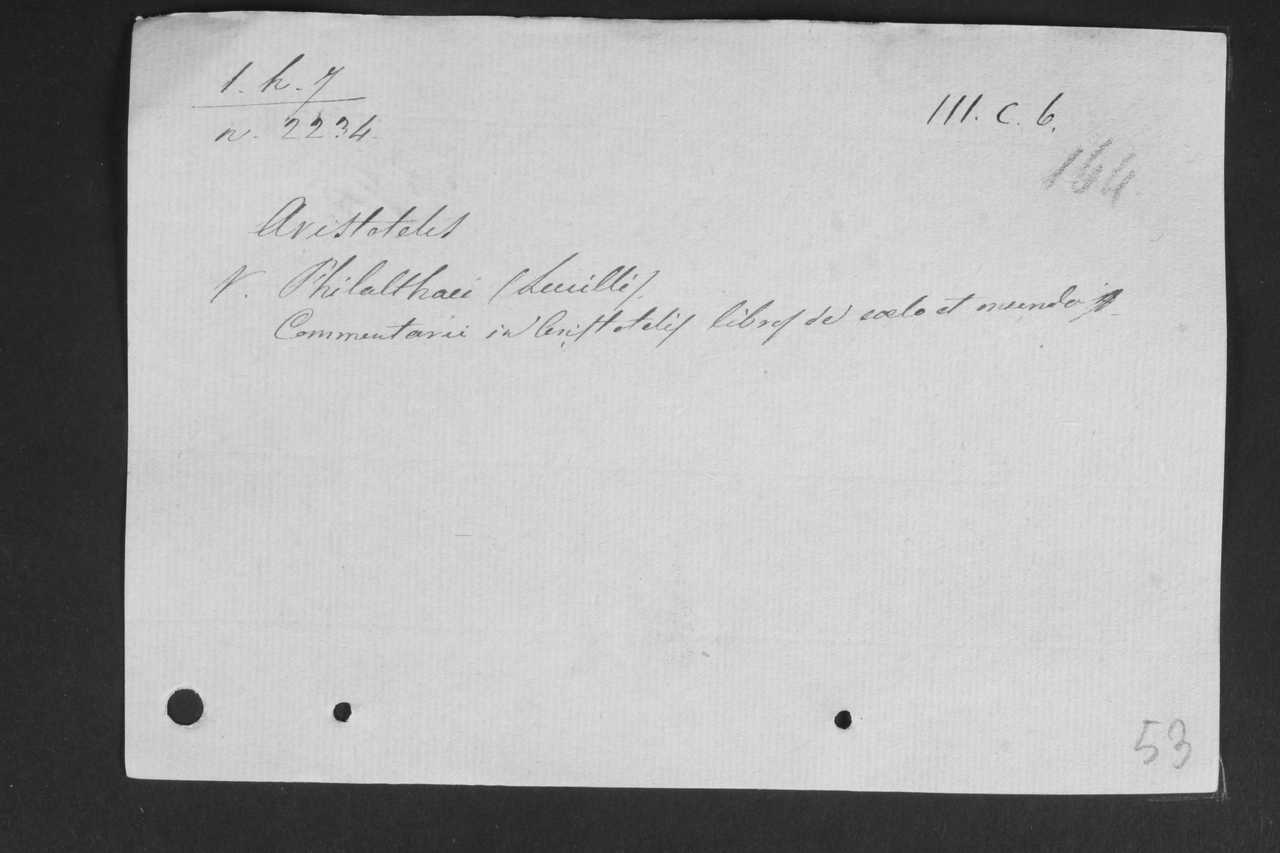 1. h. 7
n. 2234.
III. C. 6.
144
Aristoteles
V. Philalthaei (Lucilli)
Commentarii in Aristotelis libros de coelo et mundo
53